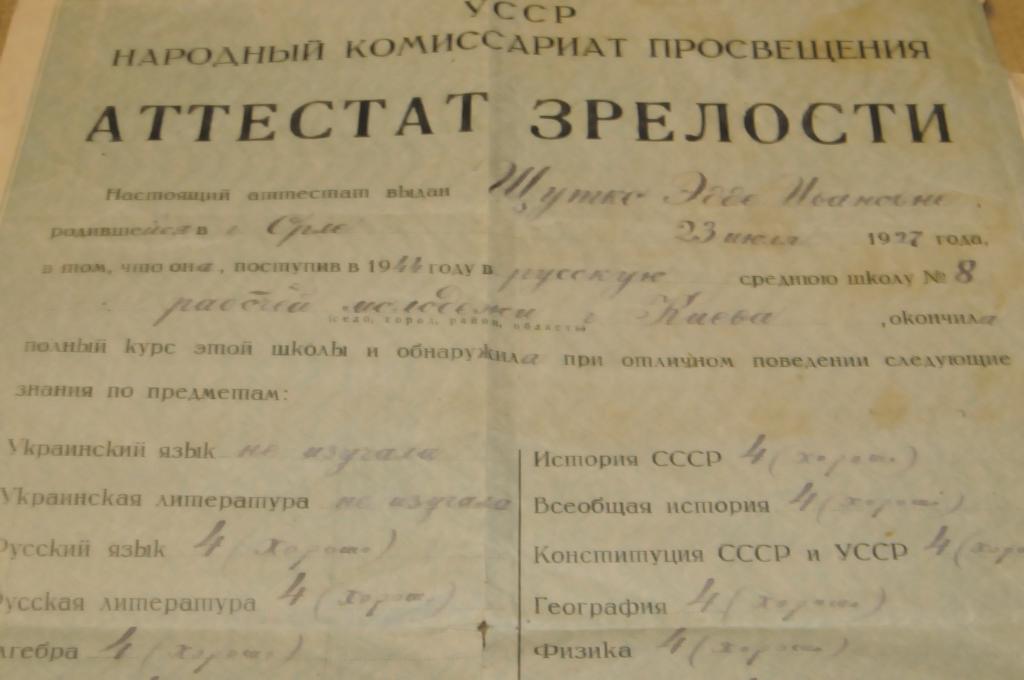 УССР
НАРОДНЫЙ КОМИССАРИАТ ПРОСВЕЩЕНИЯ
АТТЕСТАТ ЗРЕЛОСТИ
Настоящий аттестат выдан Шутко Эдде Ивановне
родившейся в г. Орле 23 июля 1927 года,
в том, что она, поступив в 1944 году в русскую среднюю школу № 8
рабочей молодежи г. Киева, окончила
(село, город, район, область)
полный курс этой школы и обнаружила при отличном поведении следующие
знания по предметам:
Украинский язык не изучала
Украинская литература не изучала
Русский язык 4 (хорошо)
Русская литература 4 (хорошо)
Алгебра 4 (хорошо)
История СССР 4 (хорошо)
Всеобщая история 4 (хорошо)
Конституция СССР и УССР 4 (хоро
География 4 (хорошо)
Физика 4 (хорошо)